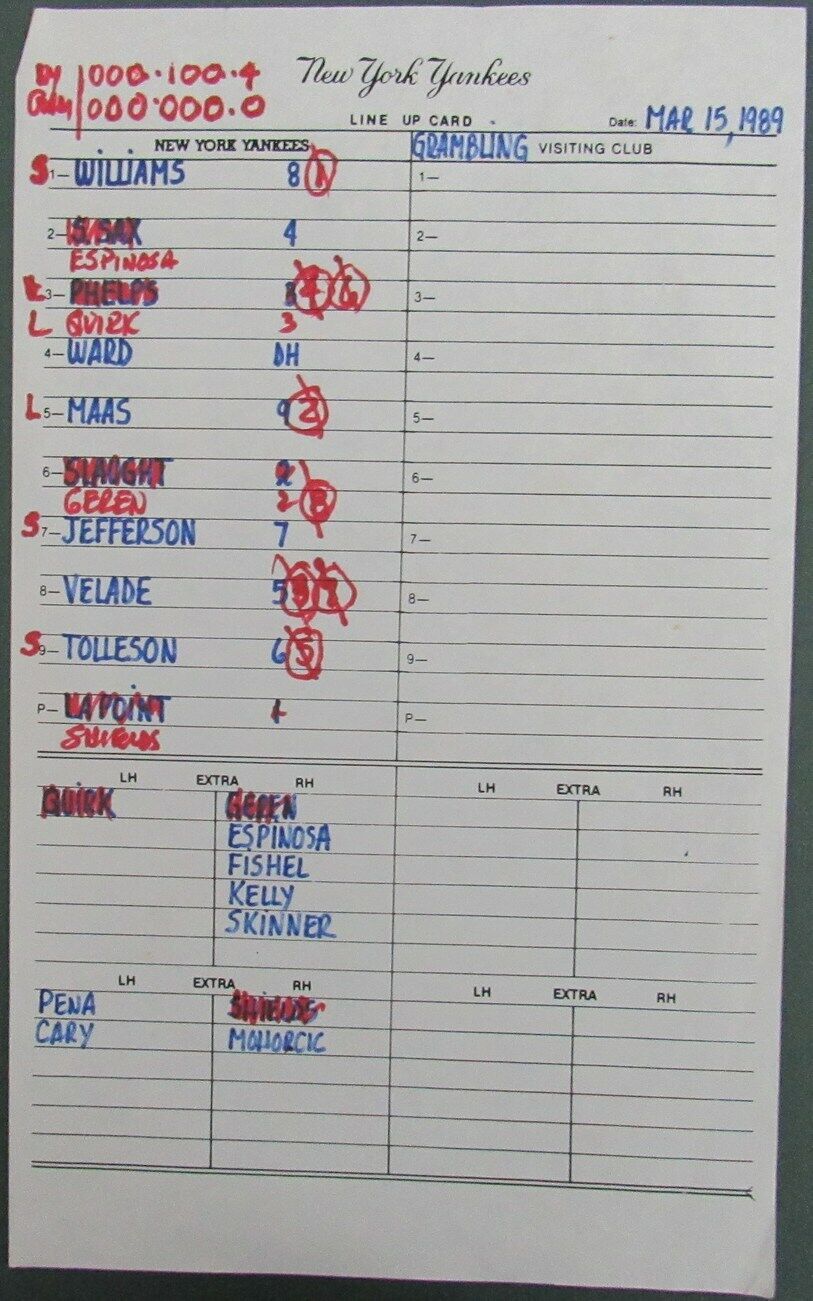 NY 000·100·4
000·000·0
New York Yankees
LINE UP CARD
Date: MAR 15, 1989
NEW YORK YANKEES
GRAMBLING VISITING CLUB
S 1— WILLIAMS 8 1
1—
2— S. SAX 4
2—
ESPINOSA
L 3— PHELPS
3—
L QUIRK 3
4— WARD DH
4—
L 5— MAAS 9 2
5—
6— SLAUGHT 2
6—
GEREN 2
S 7— JEFFERSON 7
7—
8— VELADE 5
8—
S 9— TOLLESON 6 5
9—
P— LAPOINT 1
P—
SHIELDS
LH EXTRA RH
LH EXTRA RH
QUIRK GEREN
ESPINOSA
FISHEL
KELLY
SKINNER
LH EXTRA RH
LH EXTRA RH
PENA SHIELDS
CARY MOHORCIC